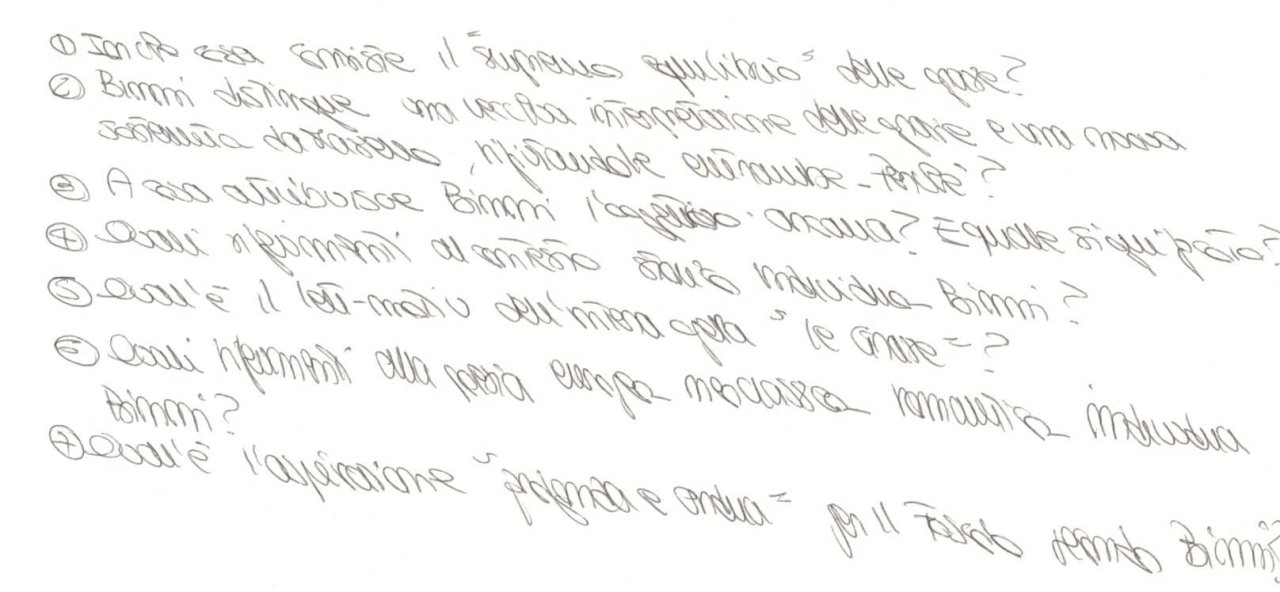 ① In che cosa consiste il "supremo equilibrio" delle grazie?
② Binni distingue una vecchia interpretazione delle grazie e una nuova
sostenuta da, rifiutandole entrambe - Perché?
③ A cosa attribuisce Binni l'aggettivo arcana? E quale significato?
④ Quali riferimenti al contesto storico individua Binni?
⑤ Qual'è il leit-motiv dell'intera opera "le Grazie"?
⑥ Quali riferimenti alla poesia europea neoclassica romantica individua
Binni?
⑦ Qual'è l'aspirazione "profonda e ardua" per il Foscolo secondo Binni?